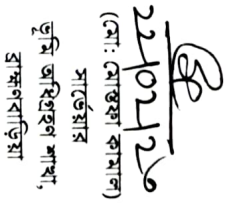 (মোঃ মোস্তফা কামাল)
সার্ভেয়ার
ভূমি অধিগ্রহণ শাখা,
ব্রাহ্মণবাড়িয়া